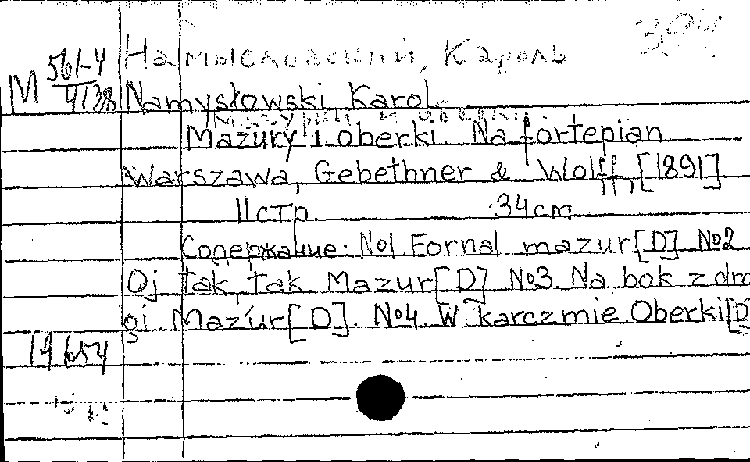 Намысловский, Кароль
М 561-4
4138
Namysłowski Karol.
Mazury i oberki. Na fortepian
Warszawa, Gebethner & Wolff, [1891]
11 стр. 34 cm
Содержание: №1 Fornal mazur [D] №2
Oj tak, tak Mazur [D] №3 Na bok z dro
gi Mazur [D]. №4 W karczmie Oberki [D]